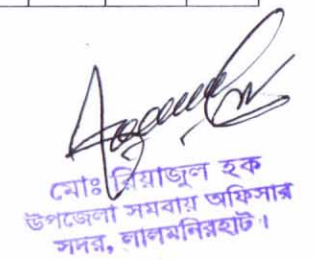 মোঃ রিয়াজুল হক
উপজেলা সমবায় অফিসার
সদর, লালমনিরহাট।